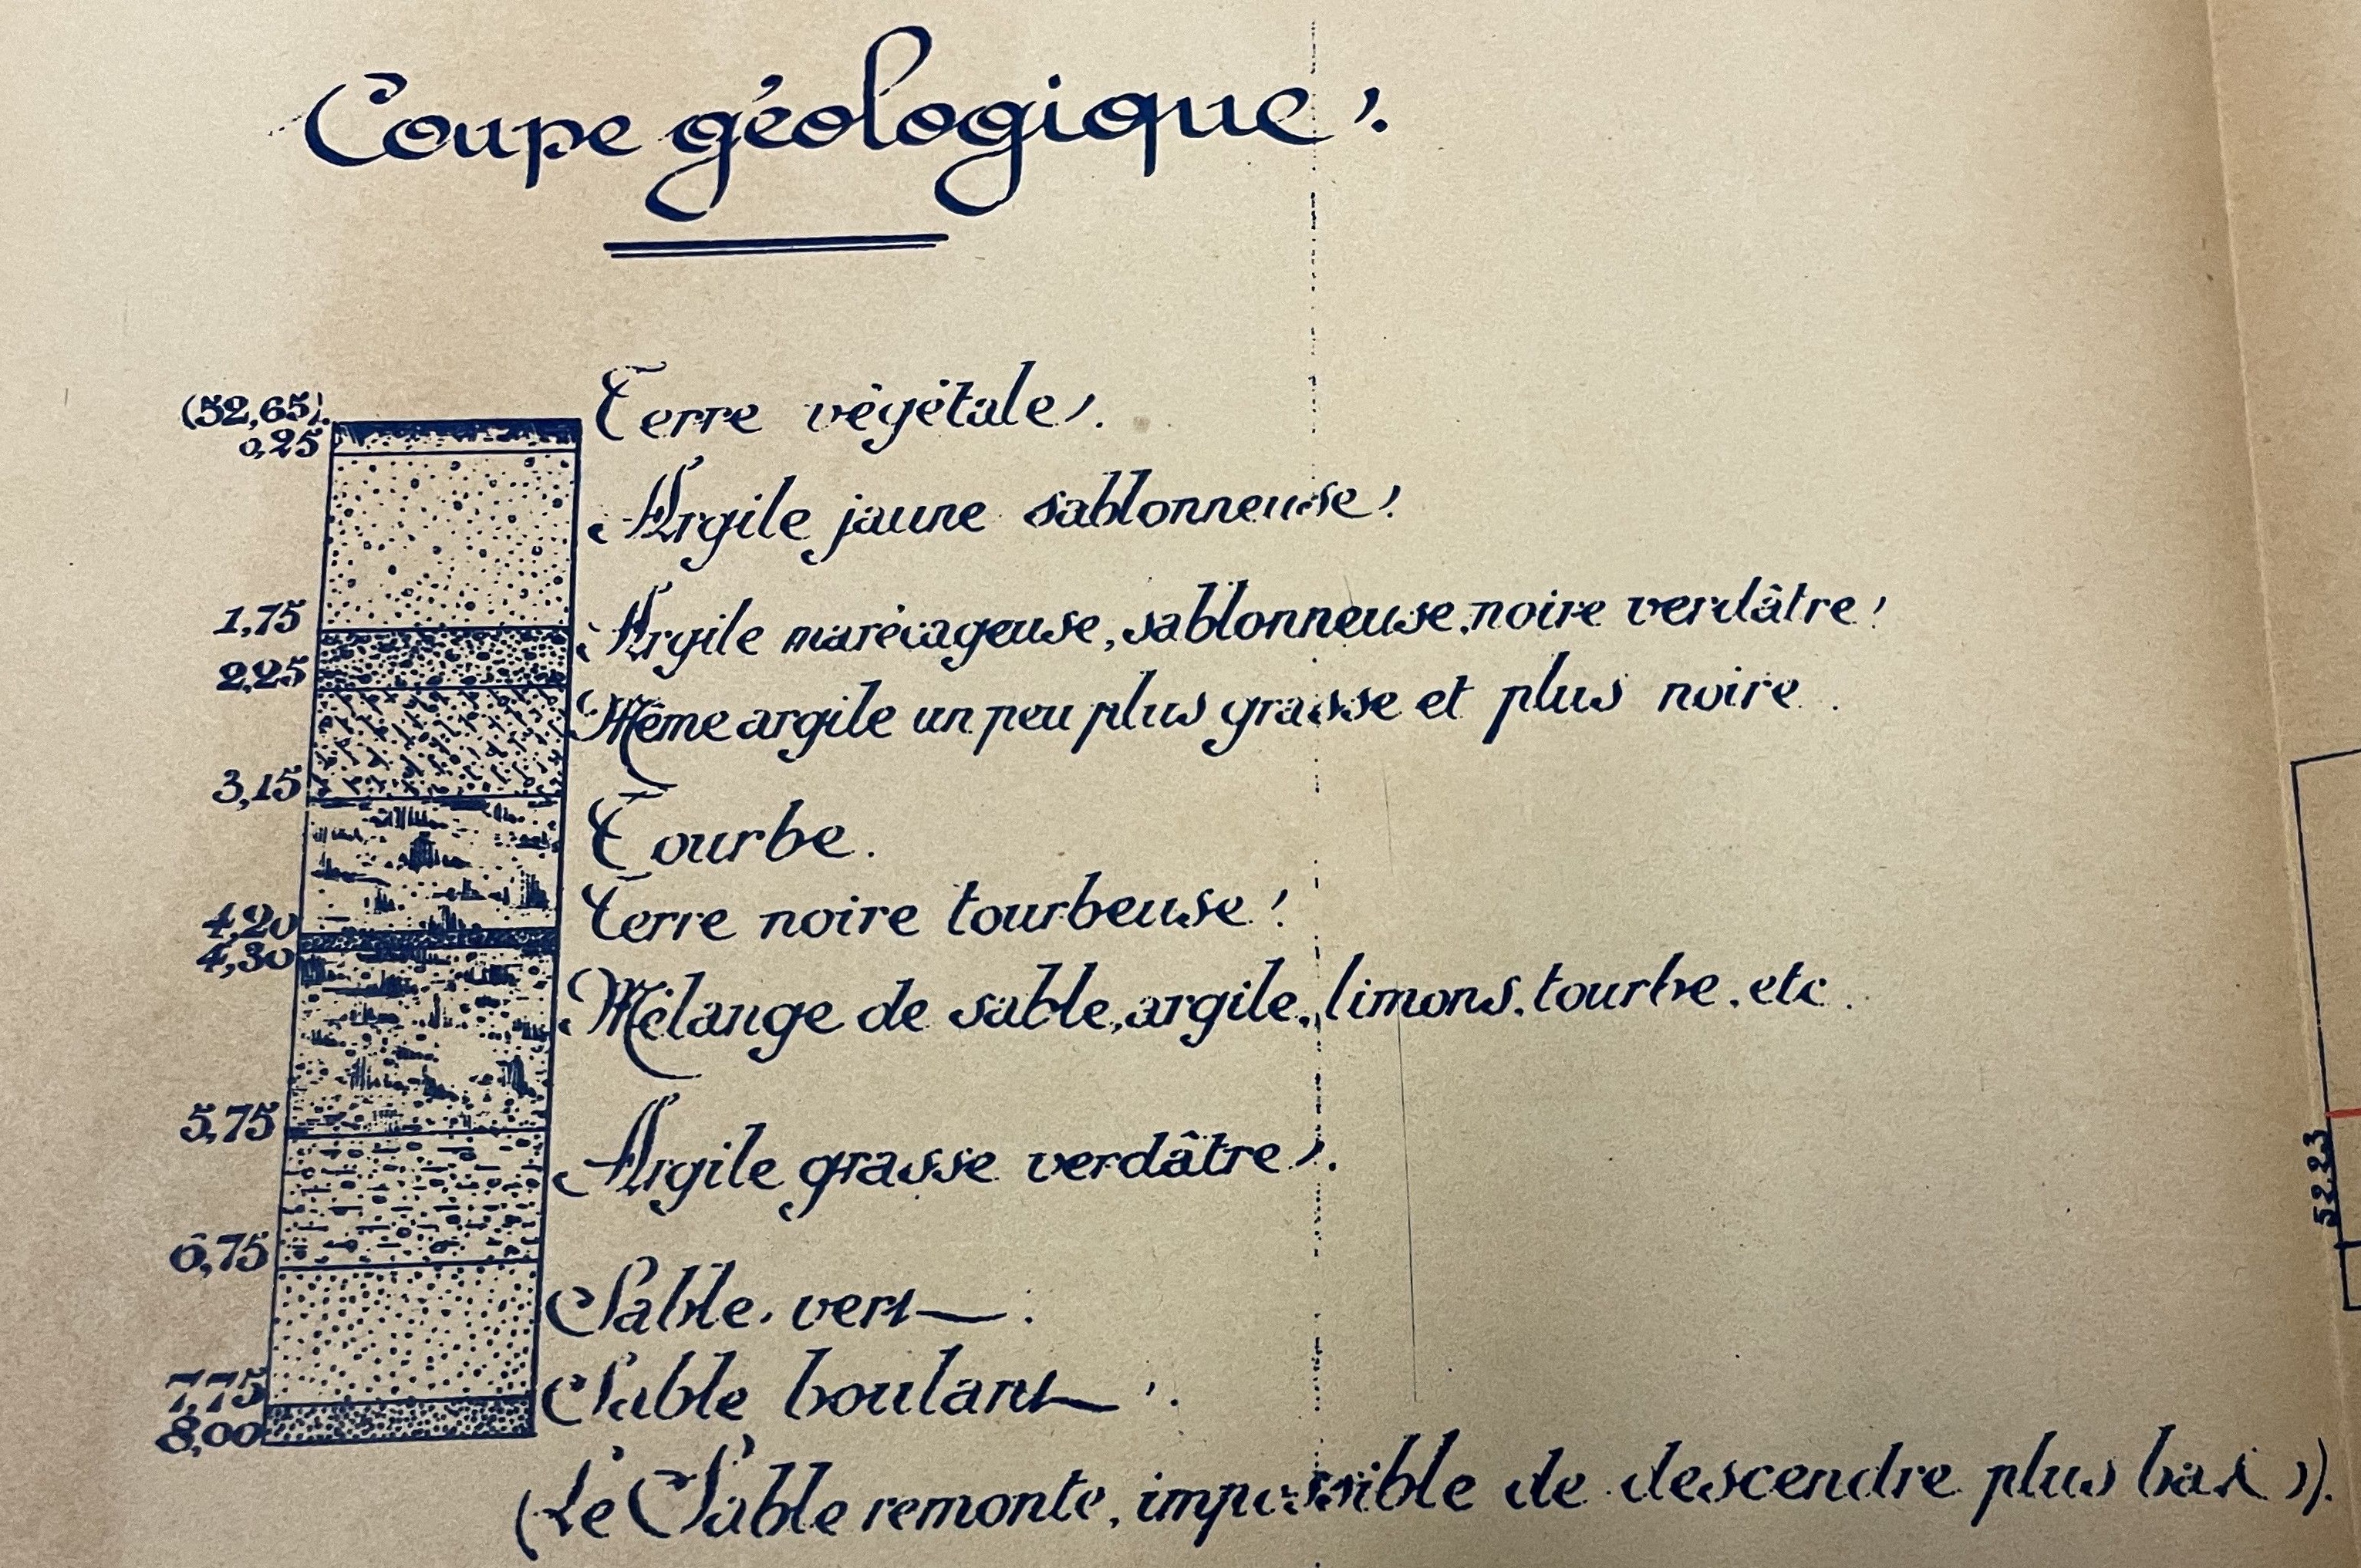 Coupe géologique.
(52,65). Terre végétale.
0,25
Argile jaune sablonneuse.
1,75 Argile marécageuse, sablonneuse, noire verdâtre.
2,25 Même argile un peu plus grasse et plus noire.
3,15
Tourbe.
4,20 Terre noire tourbeuse.
4,30
Mélange de sable, argile, limons, tourbe, etc.
5,75
Argile grasse verdâtre.
52.23
6,75
Sable vert.
7,75 Sable boulant.
8,00
(Le Sable remonte, impossible de descendre plus bas).